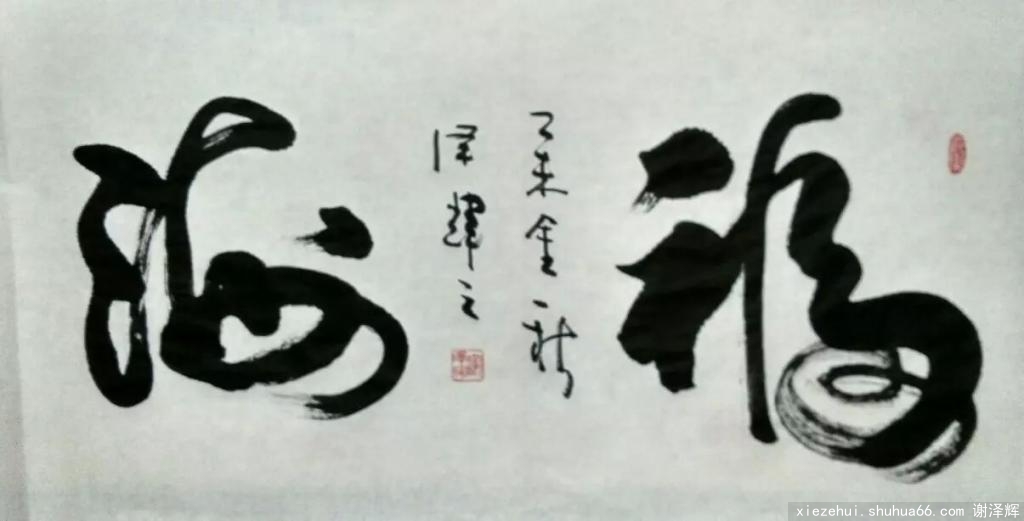 福海
乙未金秋
泽輝
xiezehui.shuhua66.com 谢泽辉